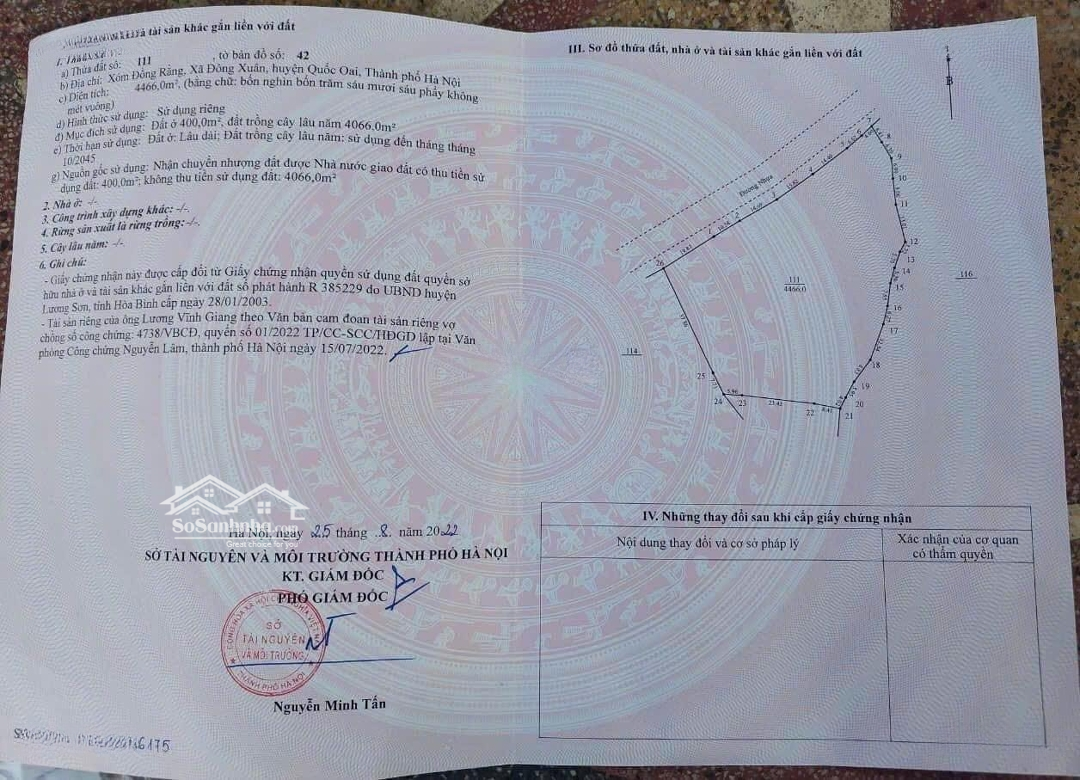 và tài sản khác gắn liền với đất
a) Thửa đất số: 111 , tờ bản đồ số: 42
b) Địa chỉ: Xóm Đồng Rằng, Xã Đông Xuân, huyện Quốc Oai, Thành phố Hà Nội
c) Diện tích: 4466,0m², (bằng chữ: bốn nghìn bốn trăm sáu mươi sáu phẩy không
mét vuông)
d) Hình thức sử dụng: Sử dụng riêng
đ) Mục đích sử dụng: Đất ở 400,0m², đất trồng cây lâu năm 4066,0m²
e) Thời hạn sử dụng: Đất ở: Lâu dài; Đất trồng cây lâu năm: sử dụng đến tháng tháng
10/2045
g) Nguồn gốc sử dụng: Nhận chuyển nhượng đất được Nhà nước giao đất có thu tiền sử
dụng đất: 400,0m²; không thu tiền sử dụng đất: 4066,0m²
2. Nhà ở: -/-
3. Công trình xây dựng khác: -/-.
4. Rừng sản xuất là rừng trồng: -/-.
5. Cây lâu năm: -/-
6. Ghi chú:
- Giấy chứng nhận này được cấp đổi từ Giấy chứng nhận quyền sử dụng đất quyền sở
hữu nhà ở và tài sản khác gắn liền với đất số phát hành R 385229 do UBND huyện
Lương Sơn, tỉnh Hòa Bình cấp ngày 28/01/2003.
- Tài sản riêng của ông Lương Vĩnh Giang theo Văn bản cam đoan tài sản riêng vợ
chồng số công chứng: 4738/VBCĐ, quyển số 01/2022 TP/CC-SCC/HĐGD lập tại Văn
phòng Công chứng Nguyễn Lâm, thành phố Hà Nội ngày 15/07/2022.
SoSanhnha.com
Great choice for you
Hà Nội, ngày 25 tháng 8 năm 2022
SỞ TÀI NGUYÊN VÀ MÔI TRƯỜNG THÀNH PHỐ HÀ NỘI
KT. GIÁM ĐỐC
PHÓ GIÁM ĐỐC
SỞ
TÀI NGUYÊN
VÀ MÔI TRƯỜNG
THÀNH PHỐ HÀ NỘI
Nguyễn Minh Tấn
III. Sơ đồ thửa đất, nhà ở và tài sản khác gắn liền với đất
B
Đường Nhựa
9
10
11
12
13
14
15
16
17
18
19
20
21
22
23
24
25
26
1
2
3
4
111
4466.0
116
114
5.96
23.42
8.42
IV. Những thay đổi sau khi cấp giấy chứng nhận
Nội dung thay đổi và cơ sở pháp lý
Xác nhận của cơ quan
có thẩm quyền